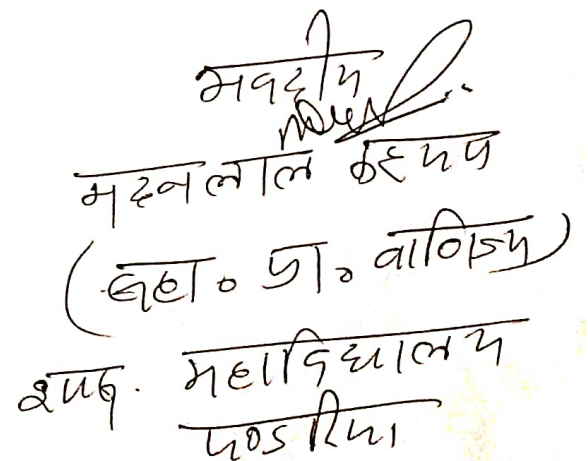 भवदीय
मदनलाल कश्यप
(सहा. प्रा. वाणिज्य)
शास. महाविद्यालय
पण्डरिया